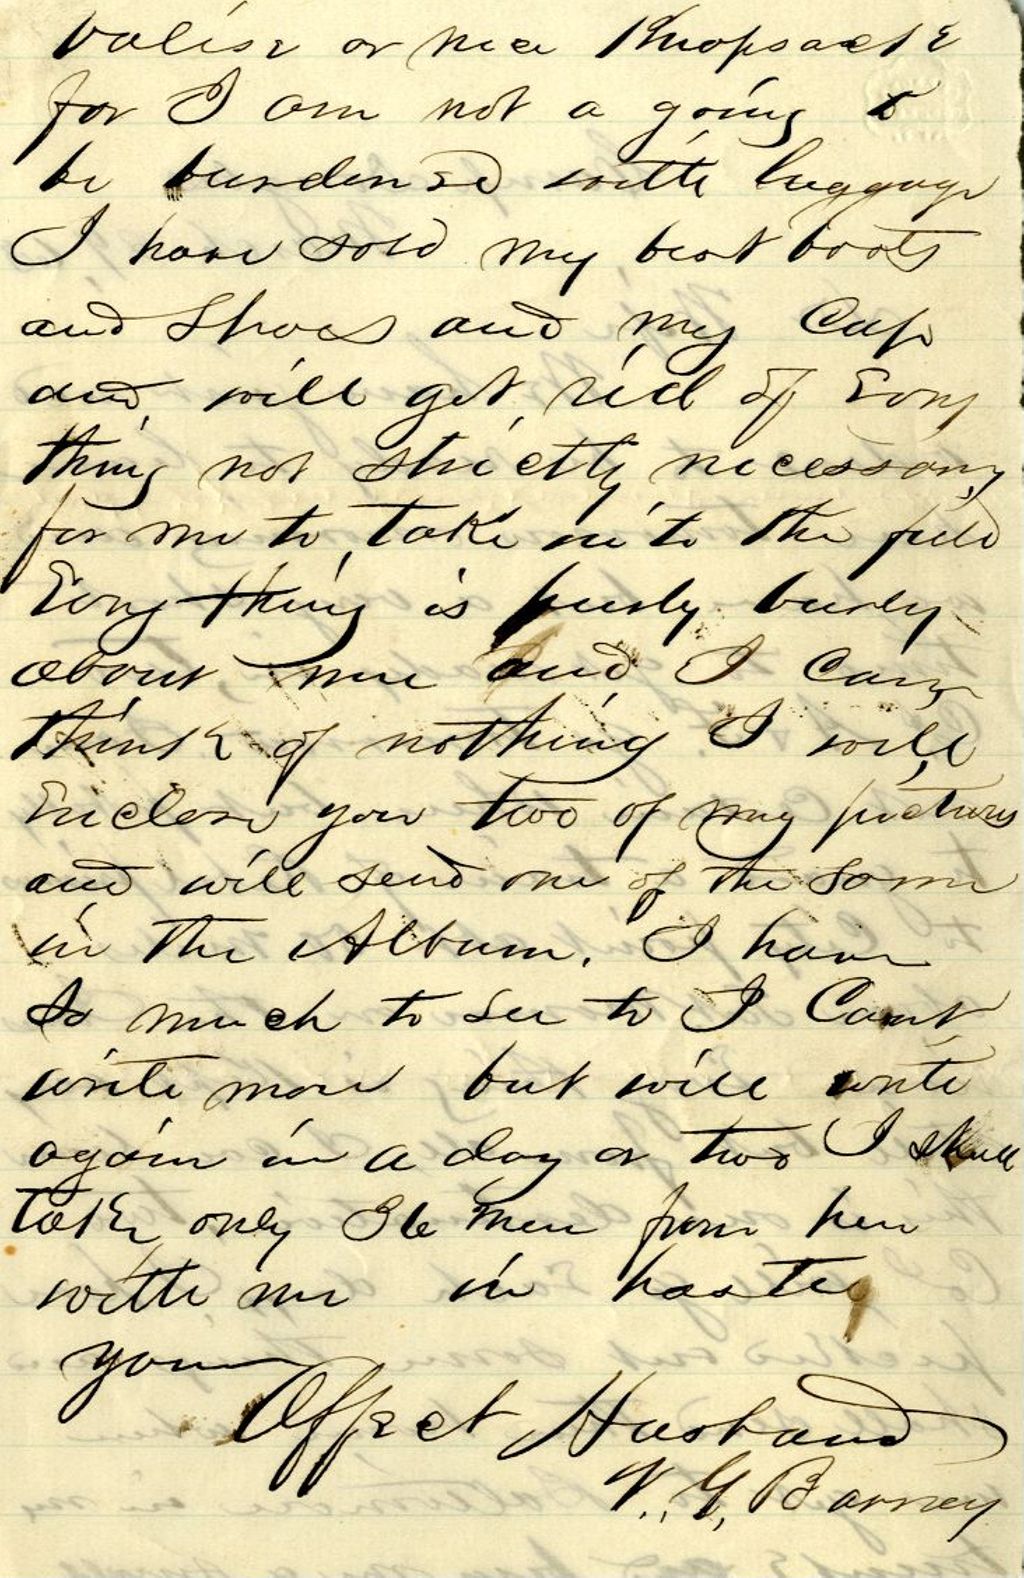 valise or nice Knapsack
for I am not a going to
be burdened with luggage
I have sold my best boots
and Shoes and my Cap
and will get rid of Evry
thing not strictly necessary
for me to take into the field
Evry thing is hurly burly
about me and I can
think of nothing I will
Enclose you two of my pictures
and will send one of the same
in the Album. I have
so much to see to I Cant
write more but will write
again in a day or two I shall
take only 36 men from here
with me in haste
your
Affect Husband
V. G. Barney